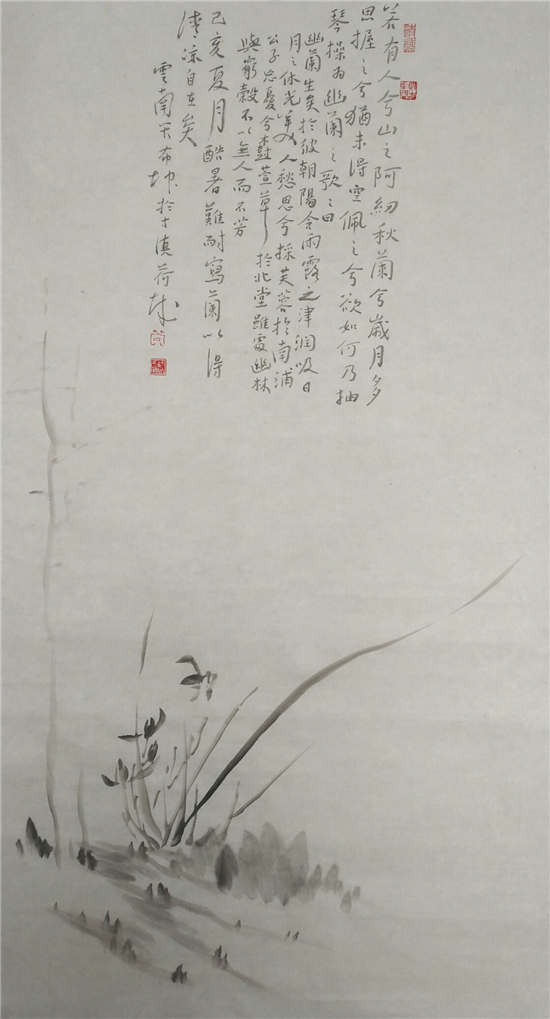 若有人兮山之阿紉秋蘭兮歲月多
思握之兮猶未得空佩之兮欲如何乃抽
琴操為幽蘭之歌之曰
幽蘭生矣於彼朝陽含雨露之津潤吸日
月之休光美人愁思兮採芙蓉於南浦
公子忘憂兮樹萱草於北堂雖處幽林
與窮穀不以無人而不芳
己亥夏月酷暑難耐寫蘭以得
清涼自在矣
雲南 布坤於 滇荷城